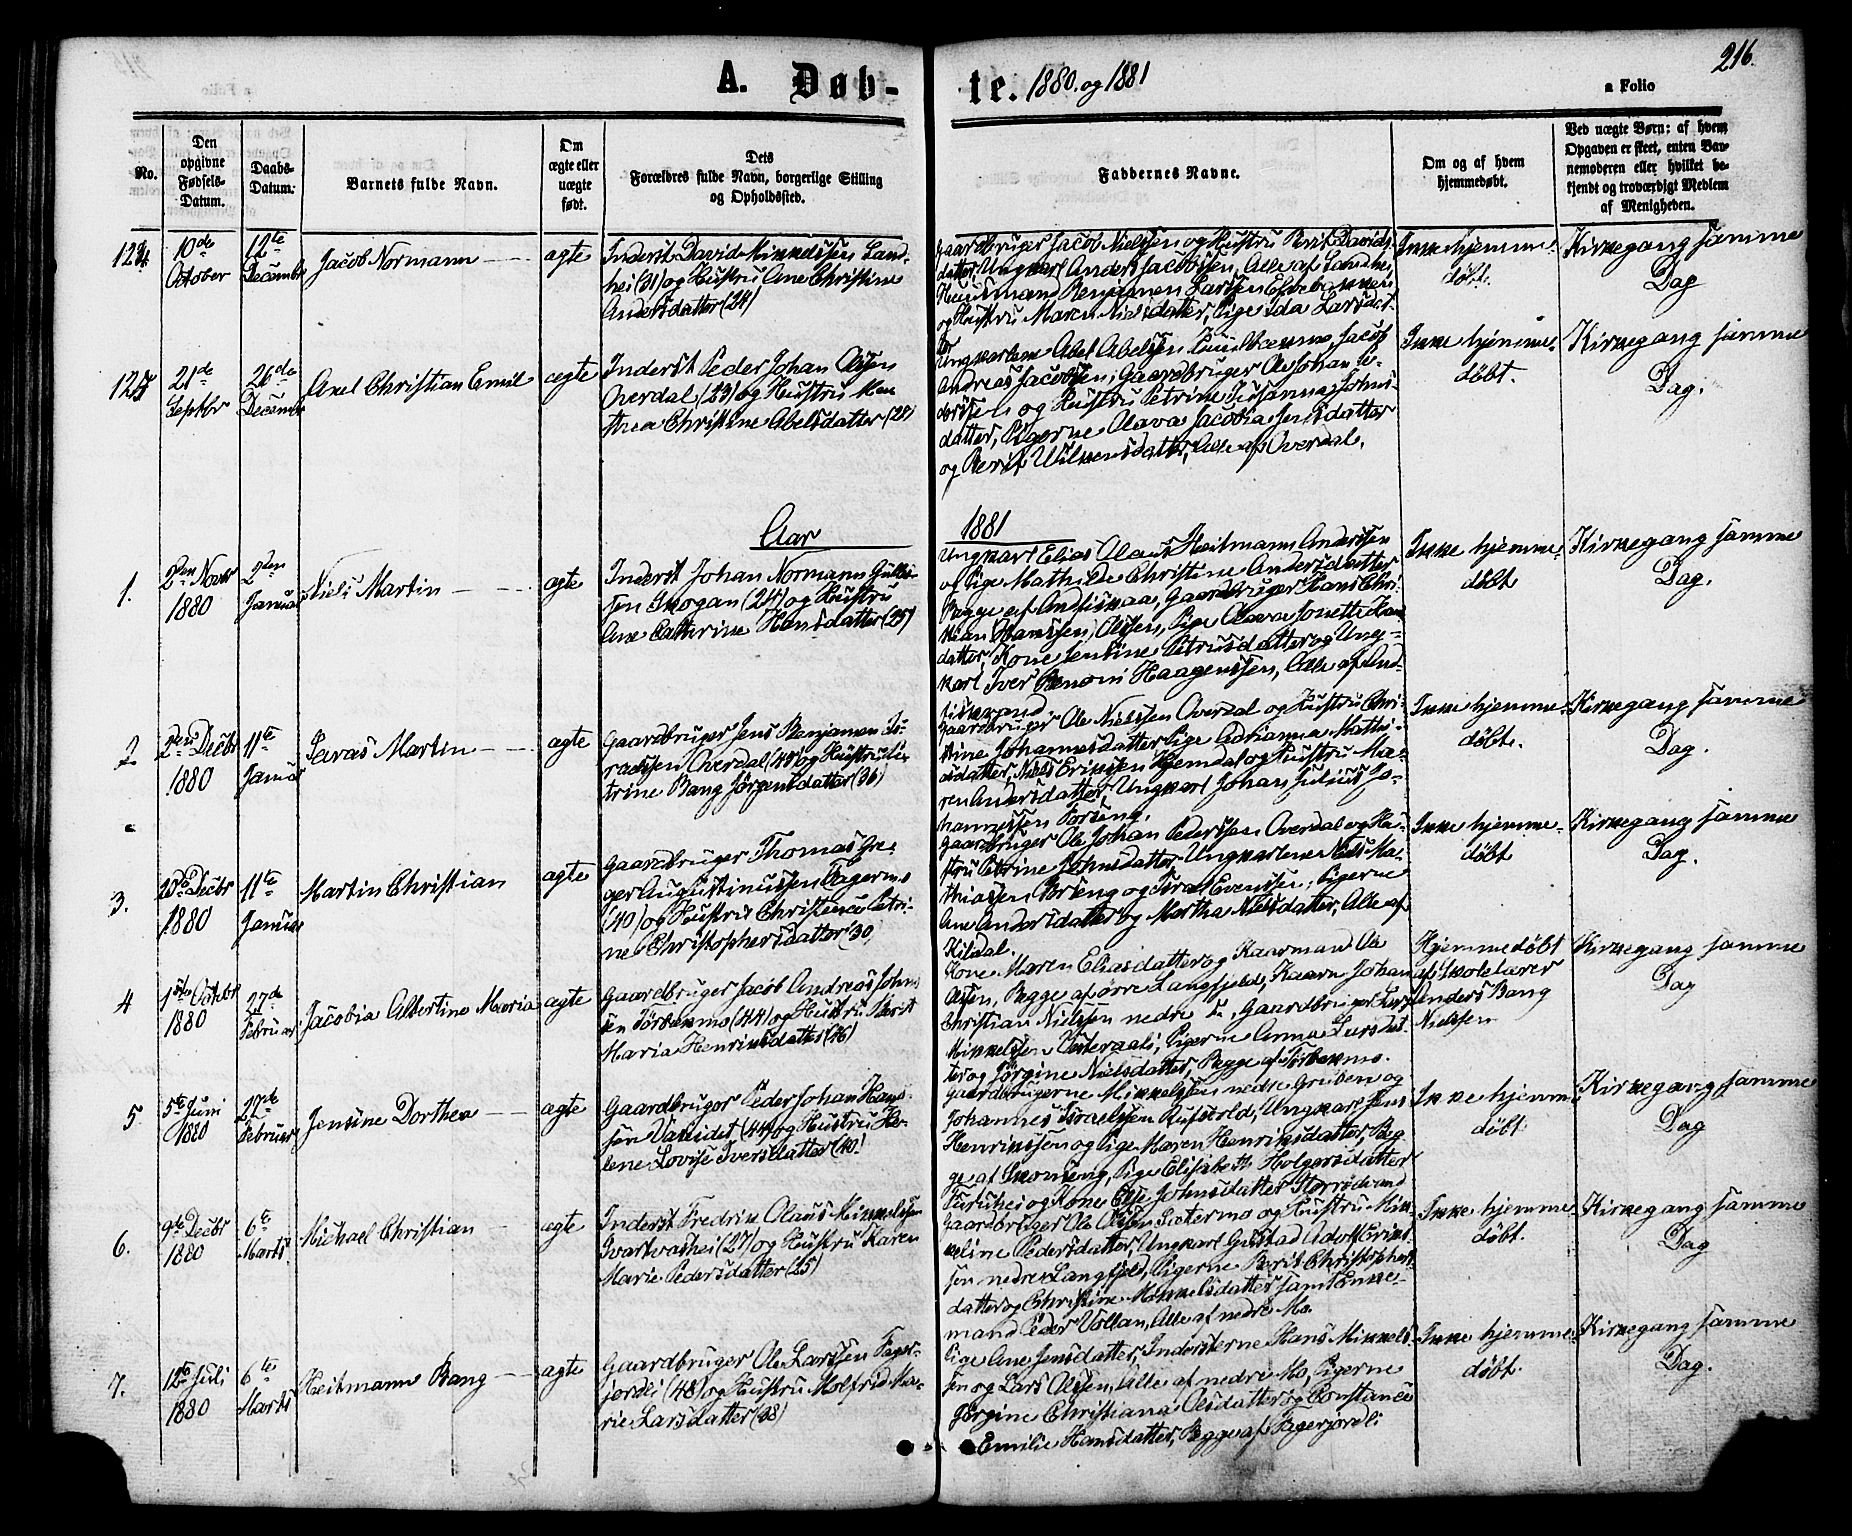 216.
A. Døb-
te. 1880. og 1881
a Folio
No.
Den
opgivne
Fødsels-
Datum.
Daabs-
Datum.
Barnets fulde Navn.
Om
ægte eller
uægte
født.
Dets
Forældres fulde Navn, borgerlige Stilling
og Opholdssted.
Faddernes Navne.
Om og af hvem
hjemmedøbt.
Ved uægte Børn: af hvem
Opgaven er skeet, enten Bar-
nemoderen eller hvilket be-
kjendt og troværdigt Medlem
af Menigheden.
124
10de
October
12te
Decembr
Jacob Normann
ægte
Inderst David Mikkelssen Land-
hei (31) og Hustru Ane Christine
Andersdatter (24)
Gaardbruger Jacob Nielssen og Hustru Berit Davids-
datter, Ungkarl Anders Jacobssen, Alle af Landhei,
Huusmand Benjamen Larssen
og Hustru Maren Nielsdatter, Pige Ida Larsdat-
ter
Ikke hjemme-
døbt.
Kirkegang samme
Dag
125
21de
Septbr
26de
Decembr
Axel Christian Emil
ægte
Inderst Peder Johan Olssen
Overdal (23) og Hustru Mar-
threa Christine Abelsdatter (28)
Ungkarlene Abel Abelssen, Jacob
Andreas Jacobsen; Gaardbruger Ole Johan Pe-
derssen og Hustru Petrine Susanna Johns-
datter, Pigerne Olava Jacobia Jensdatter
og Berit Wilkensdatter, Alle af Overdal.
Ikke hjemme-
døbt.
Kirkegang samme
Dag.
Aar
1881
1.
2den Novbr
1880
2den
Januar
Niels Martin
ægte
Inderst Johan Normann Gullik-
sen Skogan (24) og Hustru
Ane Cathrine Hansdatter (25)
Ungkarl Elias Olaus Heitmann Anderssen
og Pige Mathilde Christine Andersdatter
Begge af Andfiskaa, Gaardbruger Hans Chri-
stian Hanssen, Pige Olava Jonette Han-
datter, Kone Jentine Petrusdatter og Ung-
karl Iver Benoni Haagenssen, Alle af And-
fiskvand.
Ikke hjemme-
døbt
Kirkegang samme
Dag.
2
2den Decbr
1880
11te
Januar
Seras Martin
ægte
Gaardbruger Jens Benjamen Is-
raelssen Overdal (45) og Hustru Pe-
trine Bang Jørgensdatter (36)
Gaardbruger Ole Nielssen Overdal og Hustru Chri-
stine Johannesdatter Pige Adrianna Mathi-
asdatter, Niels Erikssen Hjemdal og Hustru Ma-
ren Andersdatter, Ungkarl Johan Julius Jo-
hannessen Forseng.
Ikke hjemme-
døbt.
Kirkegang samme
Dag.
3.
20de Decbr
1880
11te
Januar
Martin Christian
ægte
Gaardbruger Thomas Gre-
ger Augustinussen Fagermo
(40) og Hustru Christence Petri-
ne Christophersdatter 30,
Gaardbruger Ole Johan Pederssen Overdal og Hu-
stru Petrine Johnsdatter, Ungkarlene Niels Ma-
thiassen Forseng og Israel Evenssen; Pigerne
Ane Andersdatter og Martha Nielsdatter, Alle af
Kildal.
Ikke hjemme-
døbt
Kirkegang samme
Dag.
4
1ste Octbr
1880
27de
Februar
Jacobia Albertine Maria
ægte
Gaardbruger Jacob Andreas Johns-
sen Tørbekmo (44) og Hustru Berit
Maria Henriksdatter (46)
Kone Maren Eliasdatter og Kaarmand Ole
Olssen, Begge af øvre Langfjeld, Kaarm Johan
Christian Nielssen nedre, Gaardbruger Lars
Mikkelssen Vesteraali, Pigerne Anna Larsdat-
ter og Jørgine Nielsdatter, Begge af Tørbekmo.
Hjemmedøbt
af Skolelærer
Anders Bang
Nielssen
Kirkegang samme
Dag
5.
5te Juni
1880
27de
Februar
Jensine Dorthea
ægte
Gaardbruger Peder Johan Hans-
sen (44) og Hustru He-
lene Lovise Iversdatter (40)
Gaardbrugerne Mikkelssen nedre Gruben og
Johannes Israelssen, Ungkarl Jens
Henrikssen og Pige Maren Henriksdatter, Beg-
ge af Skonseng, Pige Elisabeth Holgersdatter
Furuhei og Kone Else Johnsdatter Storstrand
Ikke hjemme-
døbt.
Kirkegang samme
Dag
6.
9de Decbr
1880
6te
Marts
Michael Christian
ægte
Inderst Fredrik Olaus Mikkelssen
Svartvashei (27) og Hustru Karen
Marie Pedersdatter (25)
Gaardbruger Ole Olssen Sætermo og Hustru Mik-
keline Pedersdatter, Ungkarl Gustad Adolf Eriks-
sen nedre Langfjeld, Pigerne Berit Christophers-
datter og Christine Mikkelsdatter samt Enke-
mand Peder Vollan, Alle af nedre Mo.
Ikke hjemme-
døbt.
Kirkegang samme
Dag
7.
12te Juli
1880
6te
Marts
Heitmann Bang
ægte
Gaardbruger Ole Larssen Fager-
jordli (48) og Hustru Molfrid Ma-
rie Larsdatter (38)
Pige Ane Jensdatter, Inderstene Hans Mikkels-
sen og Lars Olssen, Alle af nedre Mo, Pigerne
Jørgine Christiana Olsdatter og Constance
Emilie Hansdatter, Begge af Fagerjordli
Ikke hjemme-
døbt.
Kirkegang samme
Dag.